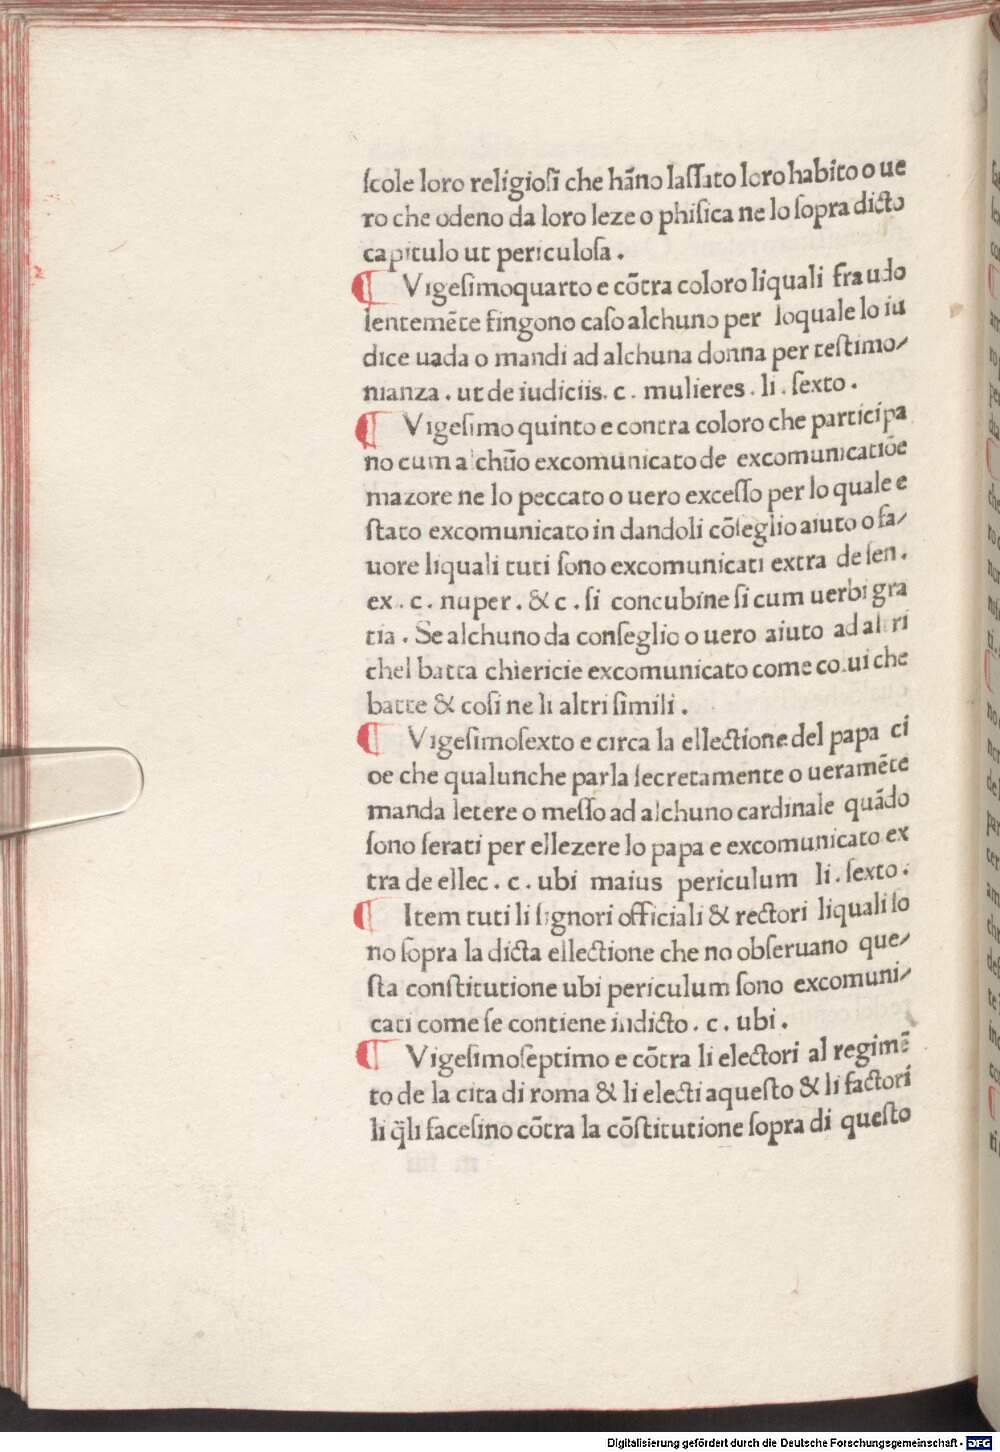 ſcole loro religioſi che hāno laſſato loro habito o ue
ro che odeno da loro leze o phiſica ne lo ſopra dicto
capitulo ut periculoſa .
¶ Vigeſimoquarto e cōtra coloro liquali fraudo
lentemēte fingono caſo alchuno per loquale lo iu
dice uada o mandi ad alchuna donna per teſtimo⸗
nianza . ut de iudiciis. c. mulieres . li . ſexto .
¶ Vigeſimo quinto e contra coloro che participa
no cum alchūo excomunicato de excomunicatiōe
mazore ne lo peccato o uero exceſſo per lo quale e
ſtato excomunicato in dandoli cōſeglio aiuto o fa⸗
uore liquali tuti ſono excomunicati extra de ſen .
ex . c . nuper . & c . ſi concubine ſi cum uerbi gra
tia . Se alchuno da conſeglio o uero aiuto ad altri
chel batta chiericie excomunicato come colui che
batte & coſi ne li altri ſimili .
¶ Vigeſimoſexto e circa la ellectione del papa ci
oe che qualunche parla ſecretamente o ueramēte
manda letere o meſſo ad alchuno cardinale quādo
ſono ſerati per ellezere lo papa e excomunicato ex
tra de ellec . c . ubi maius periculum li . ſexto .
¶ Item tuti li ſignori officiali & rectori liquali ſo
no ſopra la dicta ellectione che no obſeruano que⸗
ſta conſtitutione ubi periculum ſono excomuni⸗
cati come ſe contiene indicto . c . ubi .
¶ Vigeſimoſeptimo e cōtra li electori al regimē
to de la cita di roma & li electi aqueſto & li factori
li q̄li faceſino cōtra la cōſtitutione ſopra di queſto
Digitalisierung gefördert durch die Deutsche Forschungsgemeinschaft - DFG